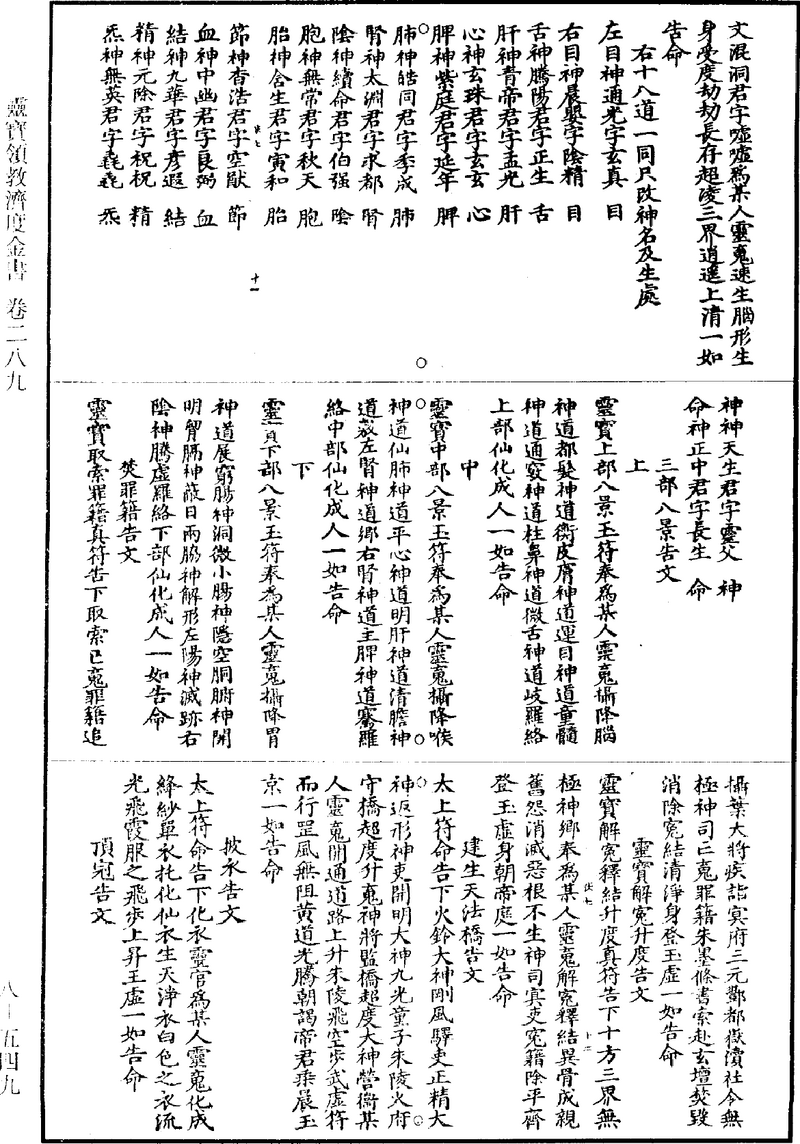 文混洞君字噓噓爲某人靈䰟速生腦形生
身受度劫劫長存超陵三界逍遥上清一如
告命
右十八道一同只改神名及生處
左目神通光字玄真　目
右目神晨嬰字陰精　目
舌神騰陽君字正生　舌
肝神青帝君字孟光　肝
心神玄珠君字玄玄　心
脾神紫庭君字延年　脾
肺神皓同君字季成　肺
腎神太淵君字求都　腎
陰神續命君字伯强　陰
胞神無常君字秋天　胞
胎神含生君字寅和　胎
節神杳浩君字空猷　節
血神中幽君字良弼　血
結神九華君字彦遐　結
精神元除君字祝祝　精
炁神無英君字堯堯　炁
神神天生君字靈父　神
命神正中君字長生　命
三部八景告文
上
靈寶上部八景玉符奉爲某人靈䰟攝降腦
神道都髮神道衡皮膚神道運目神道童髓
神道通竅神道柱鼻神道微舌神道岐羅絡
上部仙化成人一如告命
中
靈寶中部八景玉符奉爲某人靈䰟攝降喉
神道仙肺神道平心神道明肝神道清膽神
道裁左腎神道鄉右腎神道主脾神道騫羅
絡中部仙化成人一如告命
下
靈寶下部八景玉符奉爲某人靈䰟攝降胃
神道展窮腸神洞微小腸神隱空胴腑神開
明胷膈神蔽日兩脇神解形左陽神滅跡右
陰神騰虚羅絡下部仙化成人一如告命
焚罪籍告文
靈寶取索罪籍真符告下取索亡䰟罪籍追
攝葉大將疾詣冥府三元酆都嶽瀆社令無
極神司亡䰟罪籍朱墨條書索赴玄壇焚毁
消除寃結清淨身登玉虚一如告命
靈寶解寃升度告文
靈寶解寃釋結升度真符告下十方三界無
極神鄉奉爲某人靈䰟解寃釋結異骨成親
舊怨消滅惡根不生神司寘吏寃籍除平齊
登玉虚身朝帝庭一如告命
建生天法橋告文
太上符命告下火鈴大神剛風驛吏正精大
神返形神吏開明大神九光童子朱陵火府
守橋超度升䰟神將監橋超度大神營衛某
人靈䰟開通道路上升朱陵飛空步武虚符
而行罡風無阻黄道光騰朝謁帝君乘晨玉
京一如告命
披衣告文
太上符命告下化衣靈官爲某人靈䰟化成
絳紗單衣牝化仙衣生天淨衣白色之衣流
光飛霞服之飛步上昇玉虚一如告命
頂冠告文
靈寶領教濟度金書　卷二八九
八—五四九